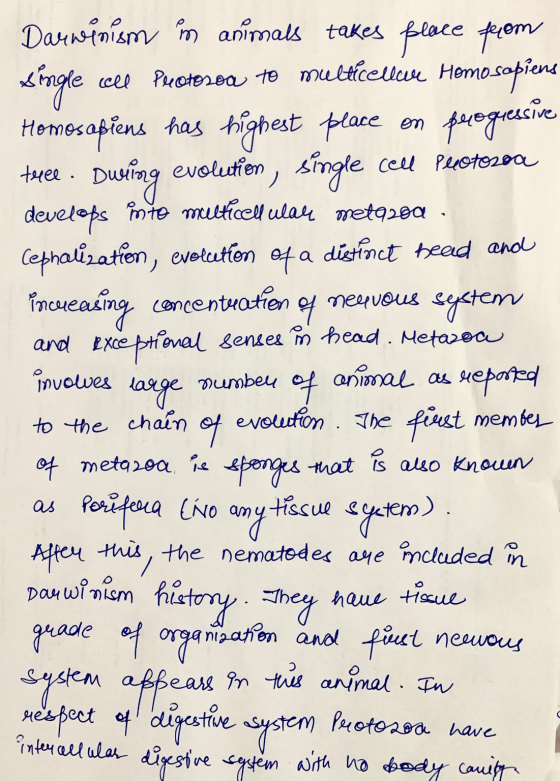 Darwinism in animals takes place from
single cell Protozoa to multicellur Homosapiens
Homosapiens has highest place on progressive
tree. During evolution, single cell Protozoa
develops into multicellular metazoa.
Cephalization, evolution of a distinct head and
increasing concentration of nervous system
and exceptional senses in head. Metazoa
involves large number of animal as reported
to the chain of evolution. The first member
of metazoa is sponges that is also known
as Porifera (No any tissue system).
After this, the nematodes are included in
Darwinism history. They have tissue
grade of organization and first nervous
system appears in this animal. In
respect of digestive system Protozoa have
digestive system with no body